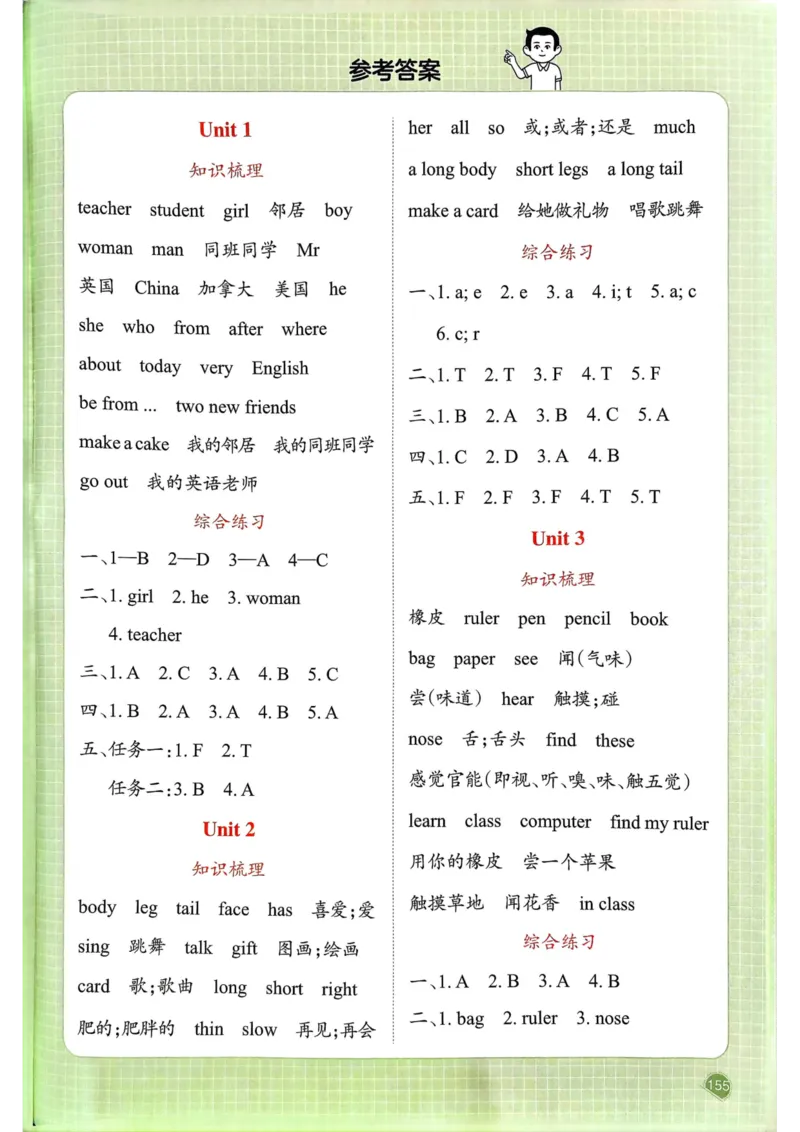 参考答案
Unit 1
知识梳理
teacher student girl 邻居 boy
woman man 同班同学 Mr
英国 China 加拿大 美国 he
she who from after where
about today very English
be from ... two new friends
make a cake 我的邻居 我的同班同学
go out 我的英语老师
综合练习
一、1—B 2—D 3—A 4—C
二、1. girl 2. he 3. woman
4. teacher
三、1. A 2. C 3. A 4. B 5. C
四、1. B 2. A 3. A 4. B 5. A
五、任务一:1. F 2. T
任务二:3. B 4. A
Unit 2
知识梳理
body leg tail face has 喜爱;爱
sing 跳舞 talk gift 图画;绘画
card 歌;歌曲 long short right
肥的;肥胖的 thin slow 再见;再会
her all so 或;或者;还是 much
a long body short legs a long tail
make a card 给她做礼物 唱歌跳舞
综合练习
一、1. a; e 2. e 3. a 4. i; t 5. a; c
6. c; r
二、1. T 2. T 3. F 4. T 5. F
三、1. B 2. A 3. B 4. C 5. A
四、1. C 2. D 3. A 4. B
五、1. F 2. F 3. F 4. T 5. T
Unit 3
知识梳理
橡皮 ruler pen pencil book
bag paper see 闻(气味)
尝(味道) hear 触摸;碰
nose 舌;舌头 find these
感觉官能(即视、听、嗅、味、触五觉)
learn class computer find my ruler
用你的橡皮 尝一个苹果
触摸草地 闻花香 in class
综合练习
一、1. A 2. B 3. A 4. B
二、1. bag 2. ruler 3. nose
155